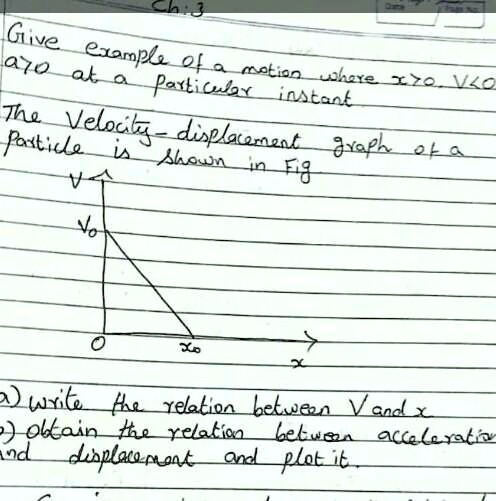 Ch:3
Date Page No.
Give example of a motion where x>0, V<0
a>0 at a particular instant
The Velocity-displacement graph of a
Particle is shown in Fig
V
Vo
O xo
x
a) write the relation between V and x
b) Obtain the relation between acceleration
and displacement and plot it.